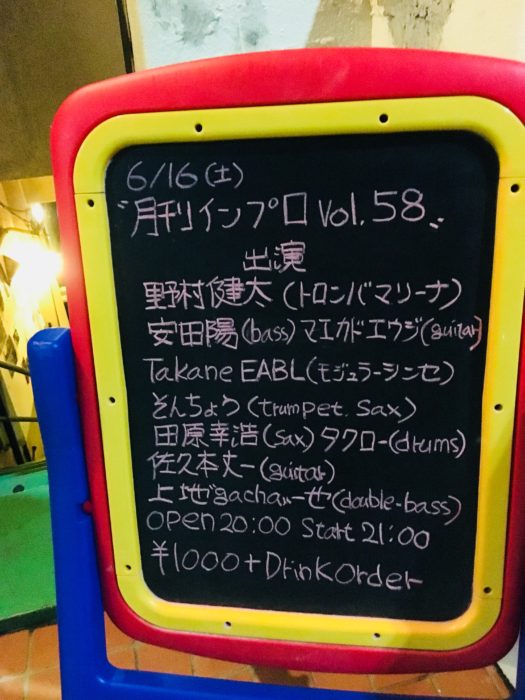 6/16(土)
"月刊インプロ Vol.58"
出演
野村健太(トロンバマリーナ)
安田陽(bass)マエカドエウジ(guitar)
Takane EABL(モジュラーシンセ)
そんちょう(trumpet.sax)
田原幸浩(sax)タクロー(drums)
佐久本丈一(guitar)
上地gacha一せ(double-bass)
open 20:00 Start 21:00
¥1000+Drink Order